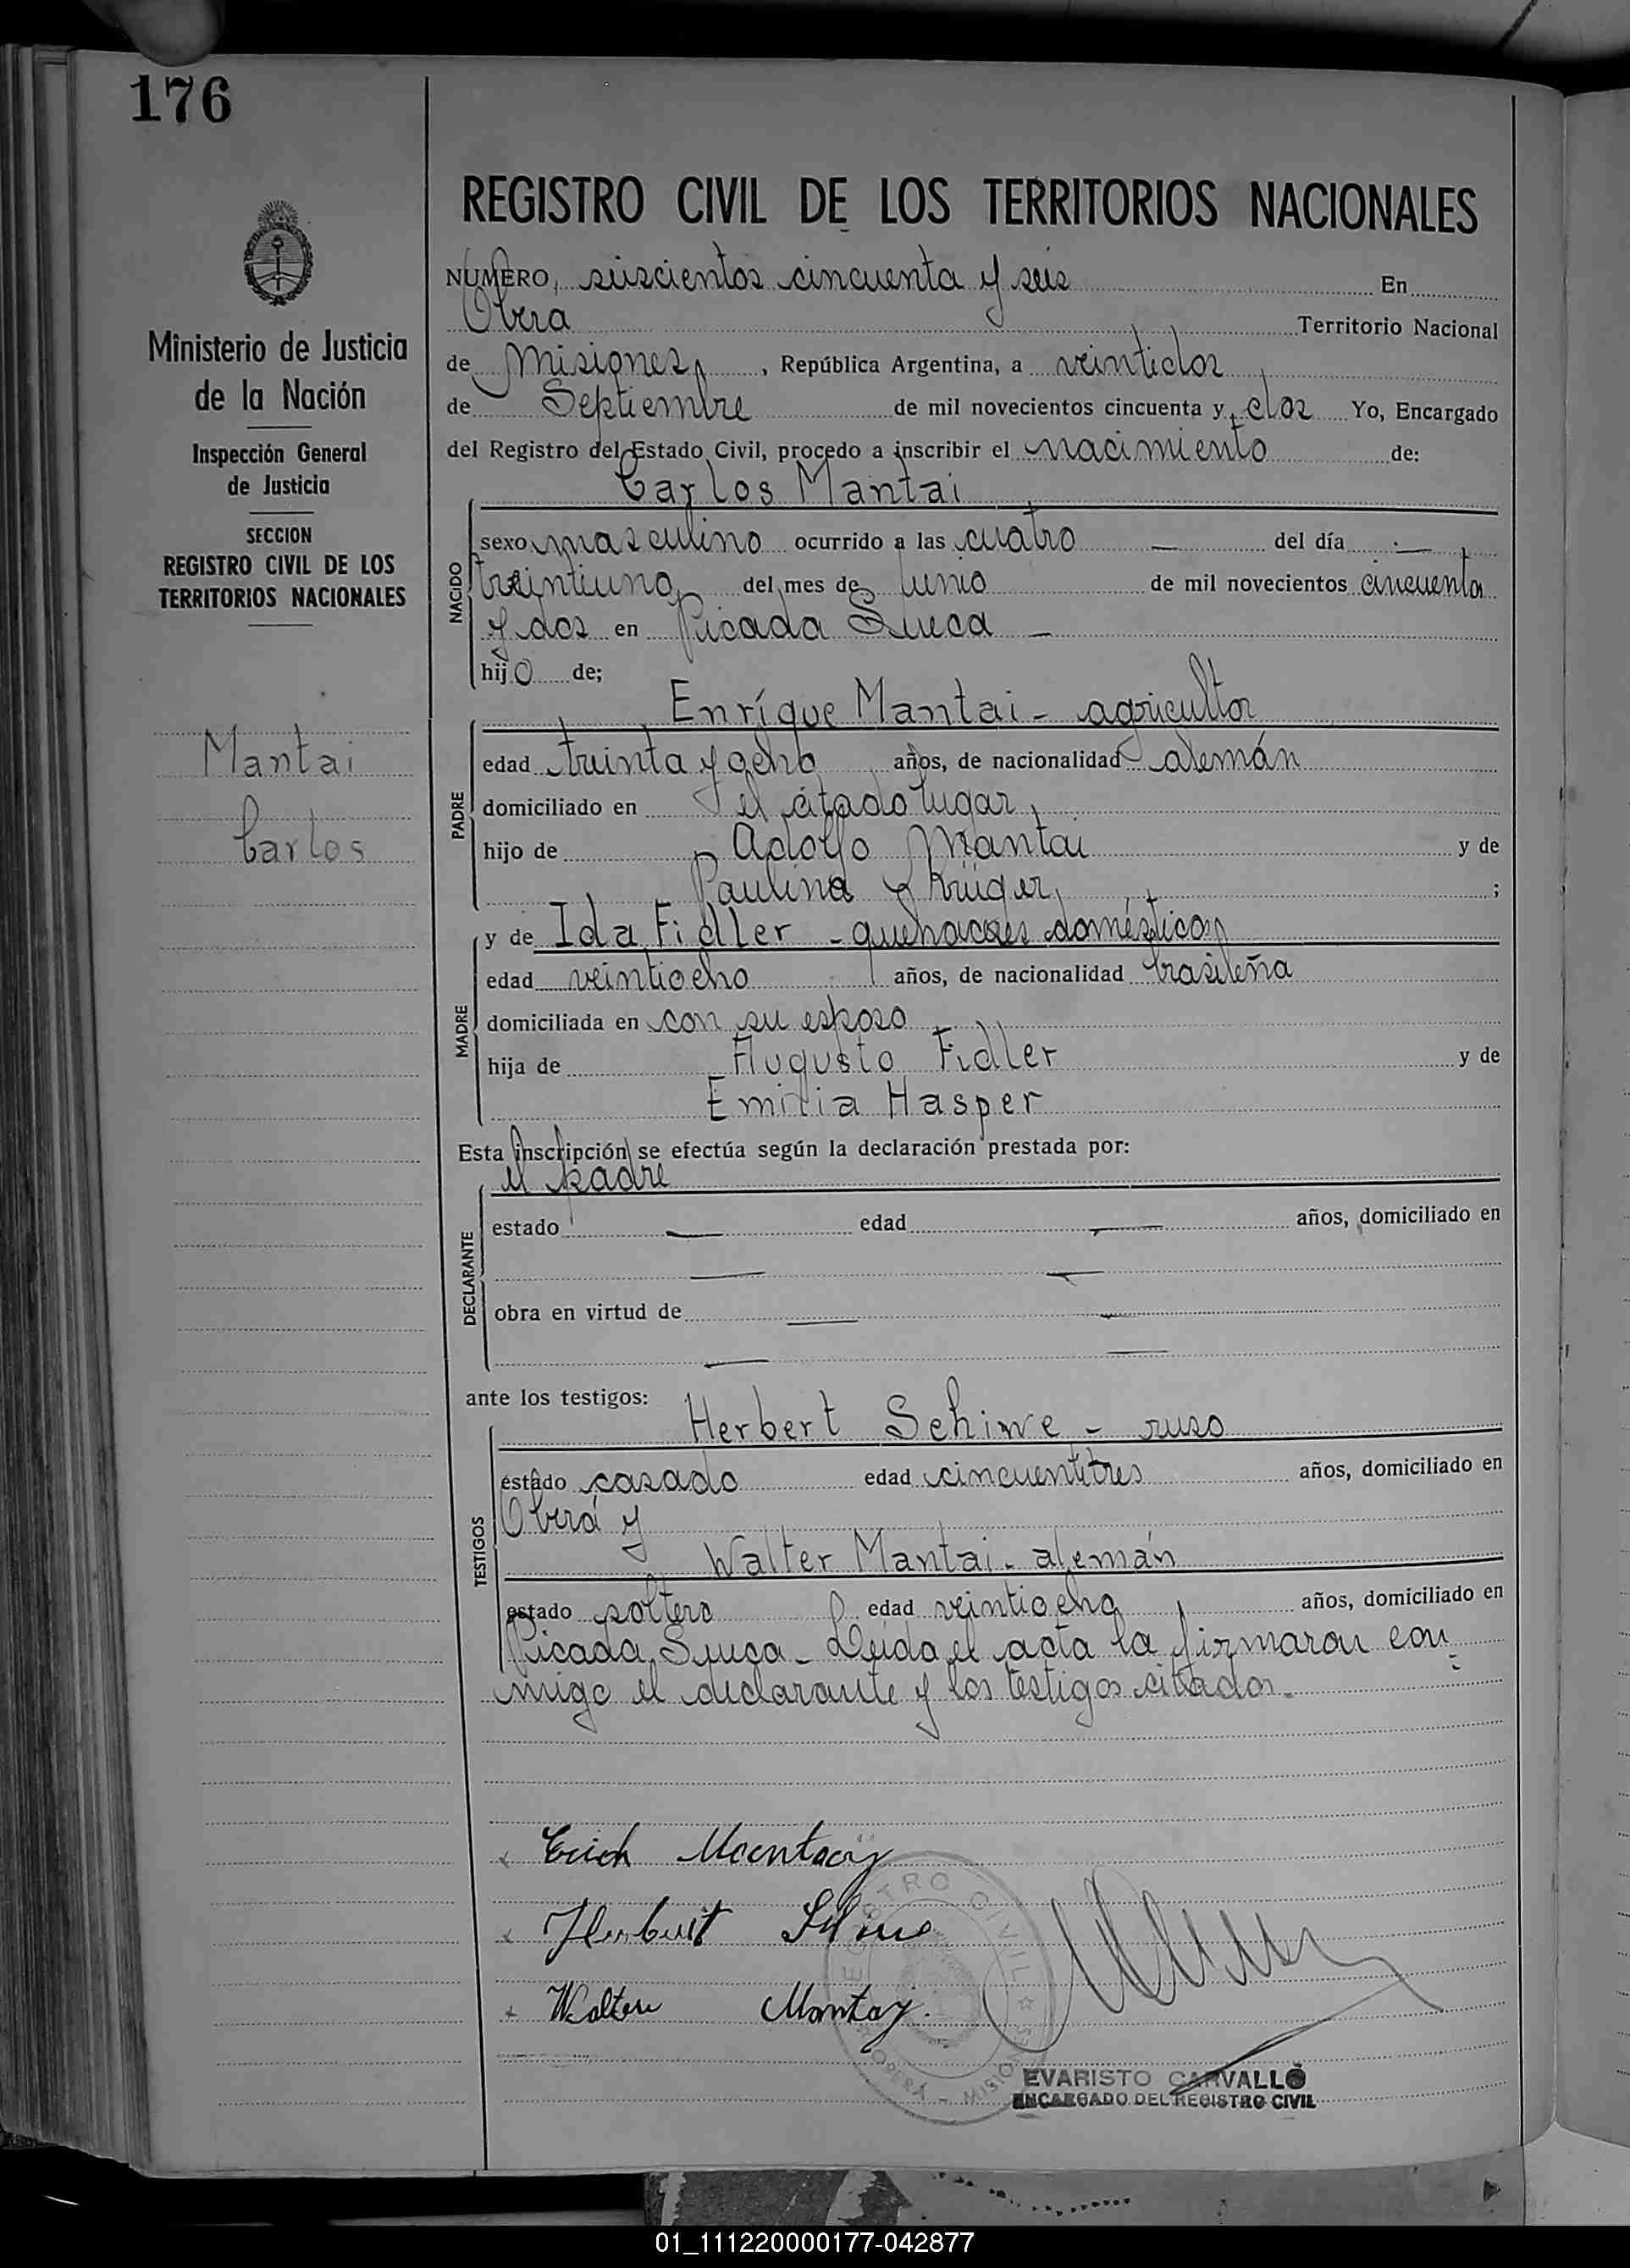 176
REGISTRO CIVIL DE LOS TERRITORIOS NACIONALES
Ministerio de Justicia
de la Nación
Inspección General
de Justicia
SECCION
REGISTRO CIVIL DE LOS
TERRITORIOS NACIONALES
Mantai
Carlos
NUMERO, seiscientos cincuenta y seis En
Obera Territorio Nacional
de Misiones, República Argentina, a veintidos
de Septiembre de mil novecientos cincuenta y dos Yo, Encargado
del Registro del Estado Civil, procedo a inscribir el nacimiento de:
Carlos Mantai
NACIDO
sexo masculino ocurrido a las cuatro — del día —
treintiuno del mes de Junio de mil novecientos cincuenta
y dos en Picada Sueca —
hijo de;
Enríque Mantai - agricultor
PADRE
edad treinta y ocho años, de nacionalidad alemán
domiciliado en el citado lugar
hijo de Adolfo Mantai y de
Paulina Krüger ;
y de Ida Fidler - quehaceres domésticos
MADRE
edad veintiocho años, de nacionalidad brasileña
domiciliada en con su esposo
hija de Augusto Fidler y de
Emilia Hasper
Esta inscripción se efectúa según la declaración prestada por:
el padre
DECLARANTE
estado — edad — años, domiciliado en
— —
obra en virtud de — —
— —
ante los testigos:
Herbert Schiwe - ruso
TESTIGOS
estado casado edad cincuentitres años, domiciliado en
Oberá y
Walter Mantai - alemán
estado soltero edad veintiocho años, domiciliado en
Picada Sueca - Leida el acta la firmaron con
migo el declarante y los testigos citados.
Erich Mantay
Herbert
Walter Mantay.
REGISTRO CIVIL
OBERÁ - MISIONES
EVARISTO CARVALLO
ENCARGADO DEL REGISTRO CIVIL
01_111220000177-042877